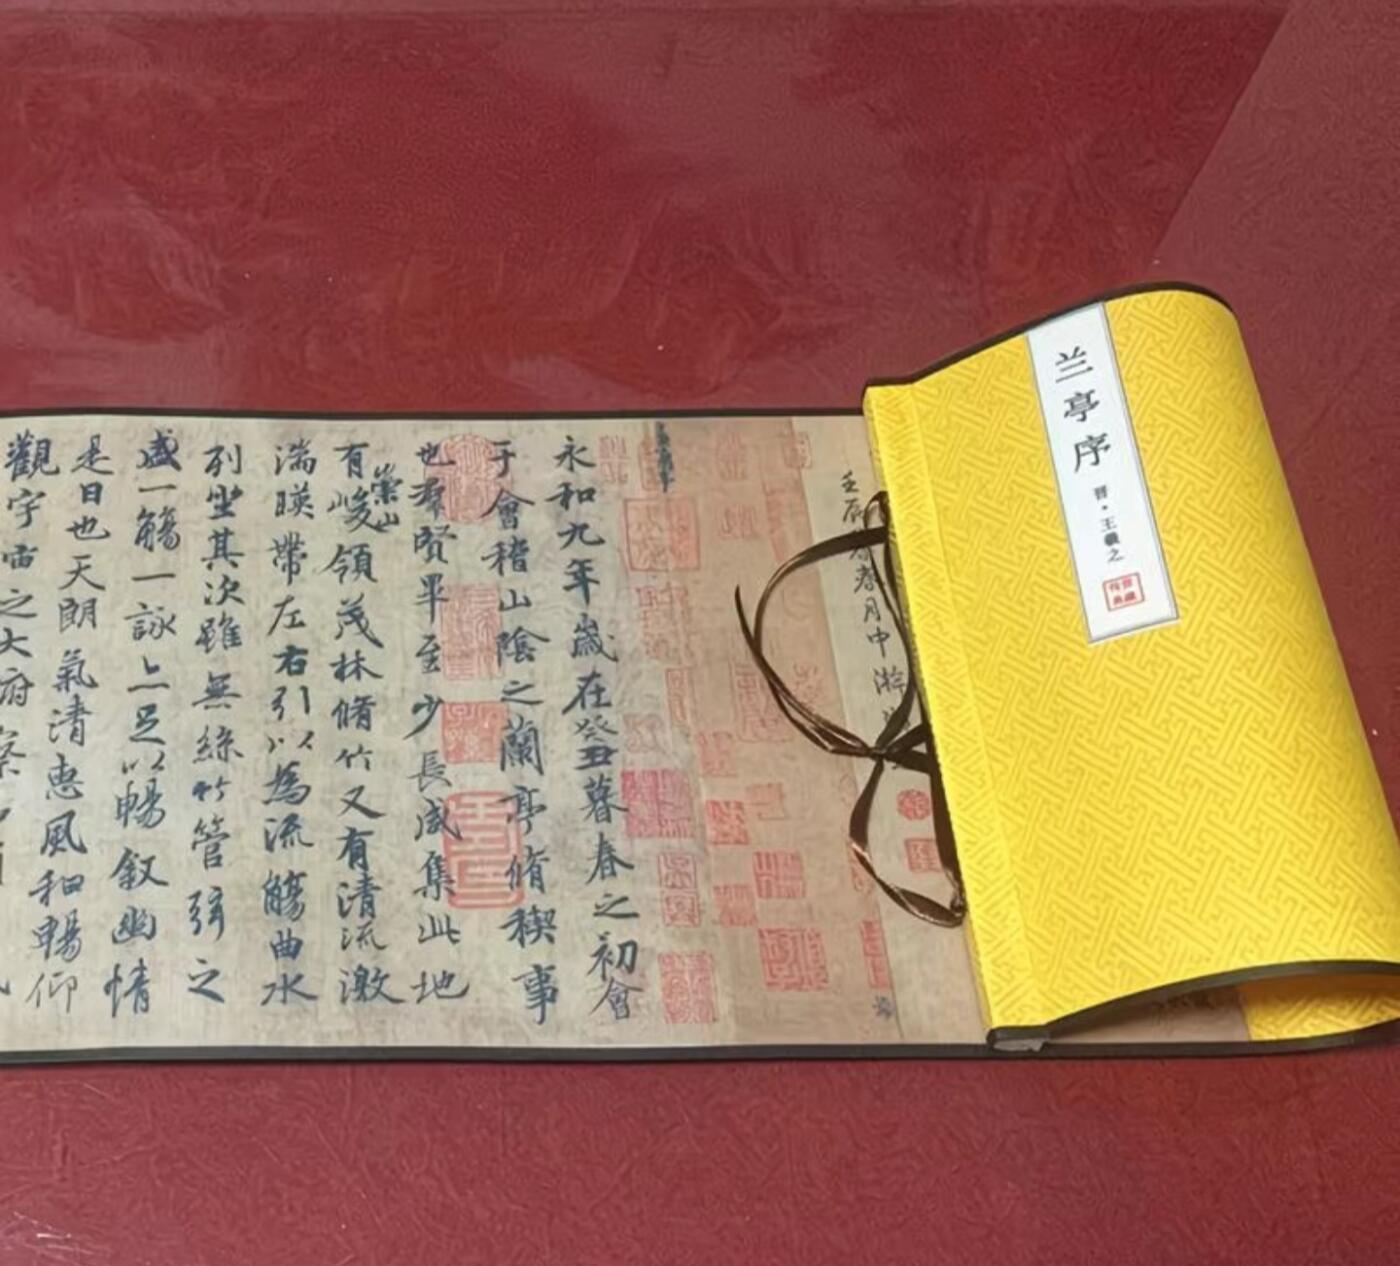 兰亭序
晋·王羲之
壬辰
春月中
永和九年歲在癸丑暮春之初會
于會稽山陰之蘭亭脩稧事
也羣賢畢至少長咸集此地
崇山
有峻領茂林脩竹又有清流激
湍暎帶左右引以為流觴曲水
列坐其次雖無絲竹管弦之
盛一觴一詠亦足以暢叙幽情
是日也天朗氣清惠風和暢仰
觀宇宙之大俯察